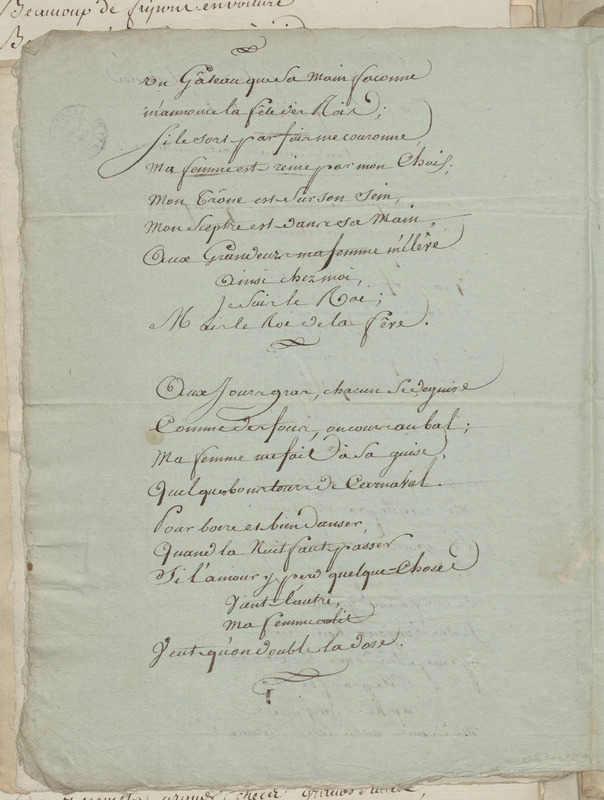 Beaucoup de fripons en voiture
un Gâteau que sa Main façonne
m'annonce la fête des Rois;
si le sort par fois me couronne,
Ma femme est reine par mon Choix;
Mon Trône est sur son sein,
Mon Sceptre est dans sa Main,
Aux Grandeurs ma femme m'élève
ainsi chez moi,
Je suis le Roi;
Mais le Roi de la fêve.
Aux Jours gras, chacun se déguise
Comme des fous, on court au bal;
Ma femme me fait à sa guise,
Quelques bons tours de Carnaval.
Pour boire et bien danser,
Quand la Nuit faut passer
Si l'amour y perd quelque-Chose
Vient l'autre,
Ma femme
Veut qu'on double la dose.